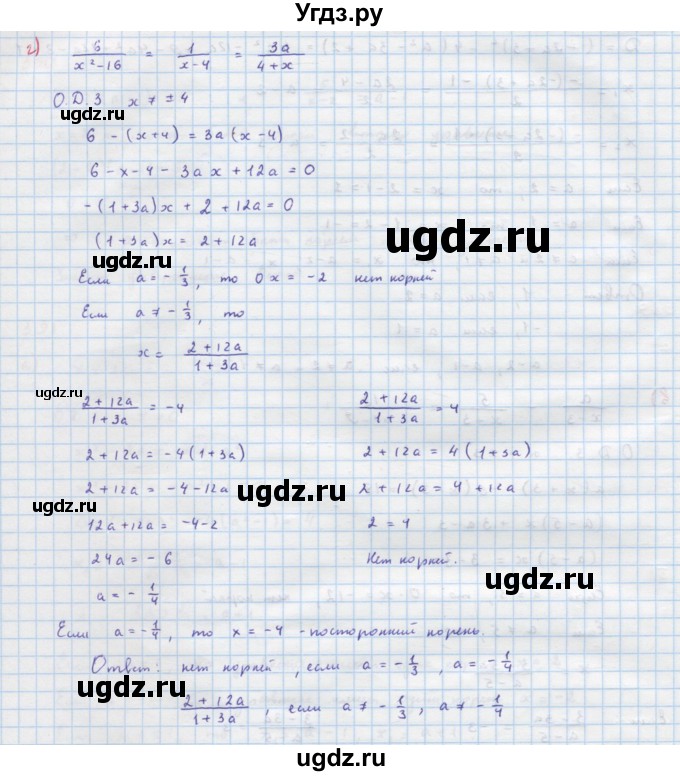 Угдз.ру
г) 6/(x²-16) = 1/(x-4) = 3a/(4+x)
О.Д.З x ≠ ±4
6 - (x+4) = 3a(x-4)
6 - x - 4 - 3ax + 12a = 0
-(1+3a)x + 2 + 12a = 0
(1+3a)x = 2 + 12a
ugdz.ru
ugdz.ru
Если a = -1/3, то 0x = -2 нет корней
Если a ≠ -1/3, то
x = (2+12a)/(1+3a)
ugdz.ru
ugdz.ru
(2+12a)/(1+3a) = -4
2+12a = -4(1+3a)
2+12a = -4-12a
ugdz.ru
ugdz.ru
12a+12a = -4-2
24a = -6
a = -1/4
(2+12a)/(1+3a) = 4
2+12a = 4(1+3a)
2+12a = 4+12a
2 = 4
Нет корней.
ugdz.ru
Если a = -1/4, то x = -4 - посторонний корень.
Ответ: нет корней, если a = -1/3, a = -1/4
ugdz.ru
(2+12a)/(1+3a), если a ≠ -1/3, a ≠ -1/4
ugdz.ru
ugdz.ru